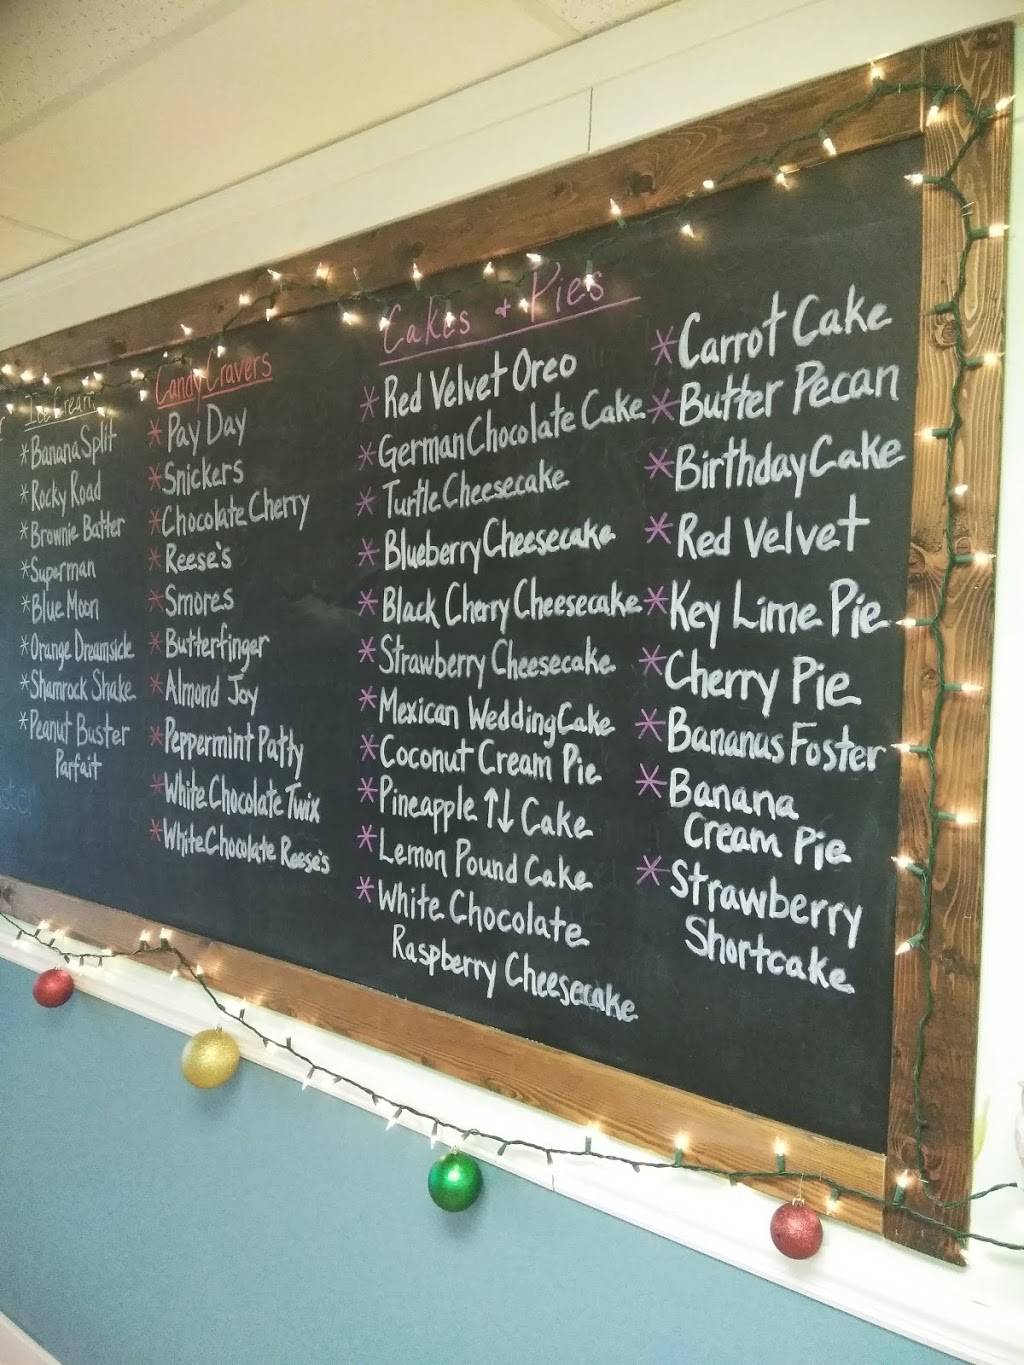 Ice Cream
*Banana Split
*Rocky Road
*Brownie Batter
*Superman
*Blue Moon
*Orange Dreamsicle
*Shamrock Shake
*Peanut Buster
Parfait
Candy Cravers
*Pay Day
*Snickers
*Chocolate Cherry
*Reese's
*Smores
*Butterfinger
*Almond Joy
*Peppermint Patty
*White Chocolate Twix
*White Chocolate Reese's
Cakes + Pies
*Red Velvet Oreo
*German Chocolate Cake
*Turtle Cheesecake
*Blueberry Cheesecake
*Black Cherry Cheesecake
*Strawberry Cheesecake
*Mexican Wedding Cake
*Coconut Cream Pie
*Pineapple ↑↓ Cake
*Lemon Pound Cake
*White Chocolate
Raspberry Cheesecake
*Carrot Cake
*Butter Pecan
*Birthday Cake
*Red Velvet
*Key Lime Pie
*Cherry Pie
*Bananas Foster
*Banana
Cream Pie
*Strawberry
Shortcake